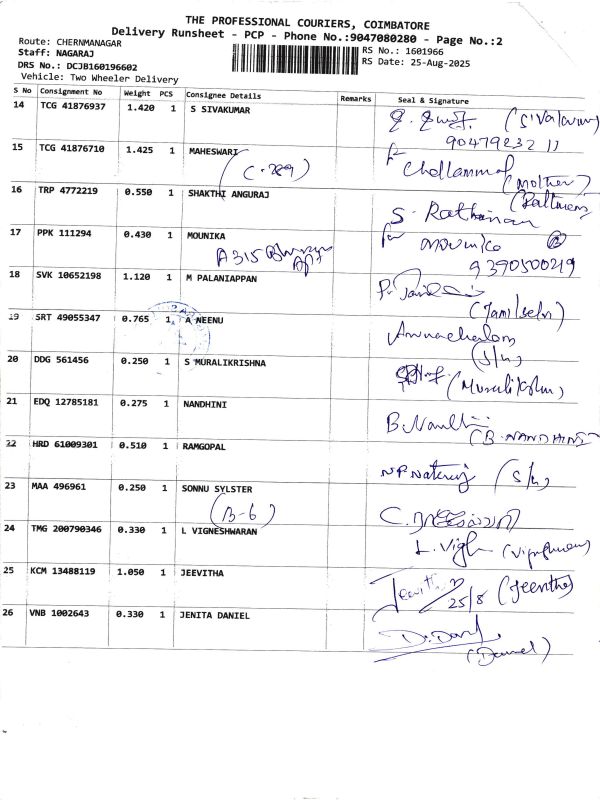 THE PROFESSIONAL COURIERS, COIMBATORE
Delivery Runsheet - PCP - Phone No.:9047080280 - Page No.:2
Route: CHERNMANAGAR
Staff: NAGARAJ
DRS No.: DCJB160196602
Vehicle: Two Wheeler Delivery
RS No.: 1601966
RS Date: 25-Aug-2025
S No Consignment No Weight PCS Consignee Details Remarks Seal & Signature
14 TCG 41876937 1.420 1 S SIVAKUMAR
15 TCG 41876710 1.425 1 MAHESWARI
(C-289) for Chellammal (Mother)
16 TRP 4772219 0.550 1 SHAKTHI ANGURAJ
S. Rathinam
17 PPK 111294 0.430 1 MOUNIKA for Mounica
A315
9390500219
18 SVK 10652198 1.120 1 M PALANIAPPAN
(Tamilselvi)
19 SRT 49055347 0.765 1 A NEENU Arunachalam
20 DDG 561456 0.250 1 S MURALIKRISHNA
21 EDQ 12785181 0.275 1 NANDHINI B.Nandhini
(B.NANDHINI)
22 HRD 61009301 0.510 1 RAMGOPAL
NP Natraj
23 MAA 496961 0.250 1 SONNU SYLSTER
(B-6)
24 TMG 200790346 0.330 1 L VIGNESHWARAN L.Vigh
25 KCM 13488119 1.050 1 JEEVITHA
25/8 (Jeevitha)
26 VNB 1002643 0.330 1 JENITA DANIEL
(Daniel)